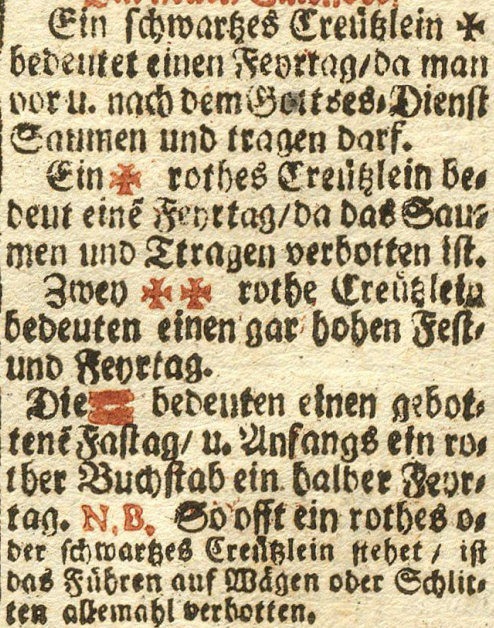 Ein schwartzes Creützlein ✠
bedeutet einen Feyrtag/da man
vor u. nach dem Gottses⸗Dienst
Saumen und tragen darf.
Ein ✠ rothes Creützlein be⸗
deut einē Feyrtag/da das Sau⸗
men und Ttragen verbotten ist.
Zwey ✠ ✠ rothe Creützlein
bedeuten einen gar hohen Fest⸗
und Feyrtag.
Die bedeuten einen gebot⸗
tenē Fastag/ u. Anfangs ein ro⸗
ther Buchstab ein halber Feyr⸗
tag. N.B. So offt ein rothes o⸗
der schwartzes Creützlein stehet / ist
das Führen auf Wägen oder Schlit⸗
ten allemahl verbotten.